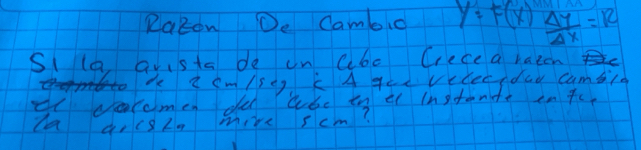 Razon De Cambio Y = F(X) ΔY/ΔX = R
Si la arista de un cubo Crece a razon
de 2 cm/seg ¿ A que velocidad cambia
el volumen del cubo en el instante en
la arista mide 5cm?